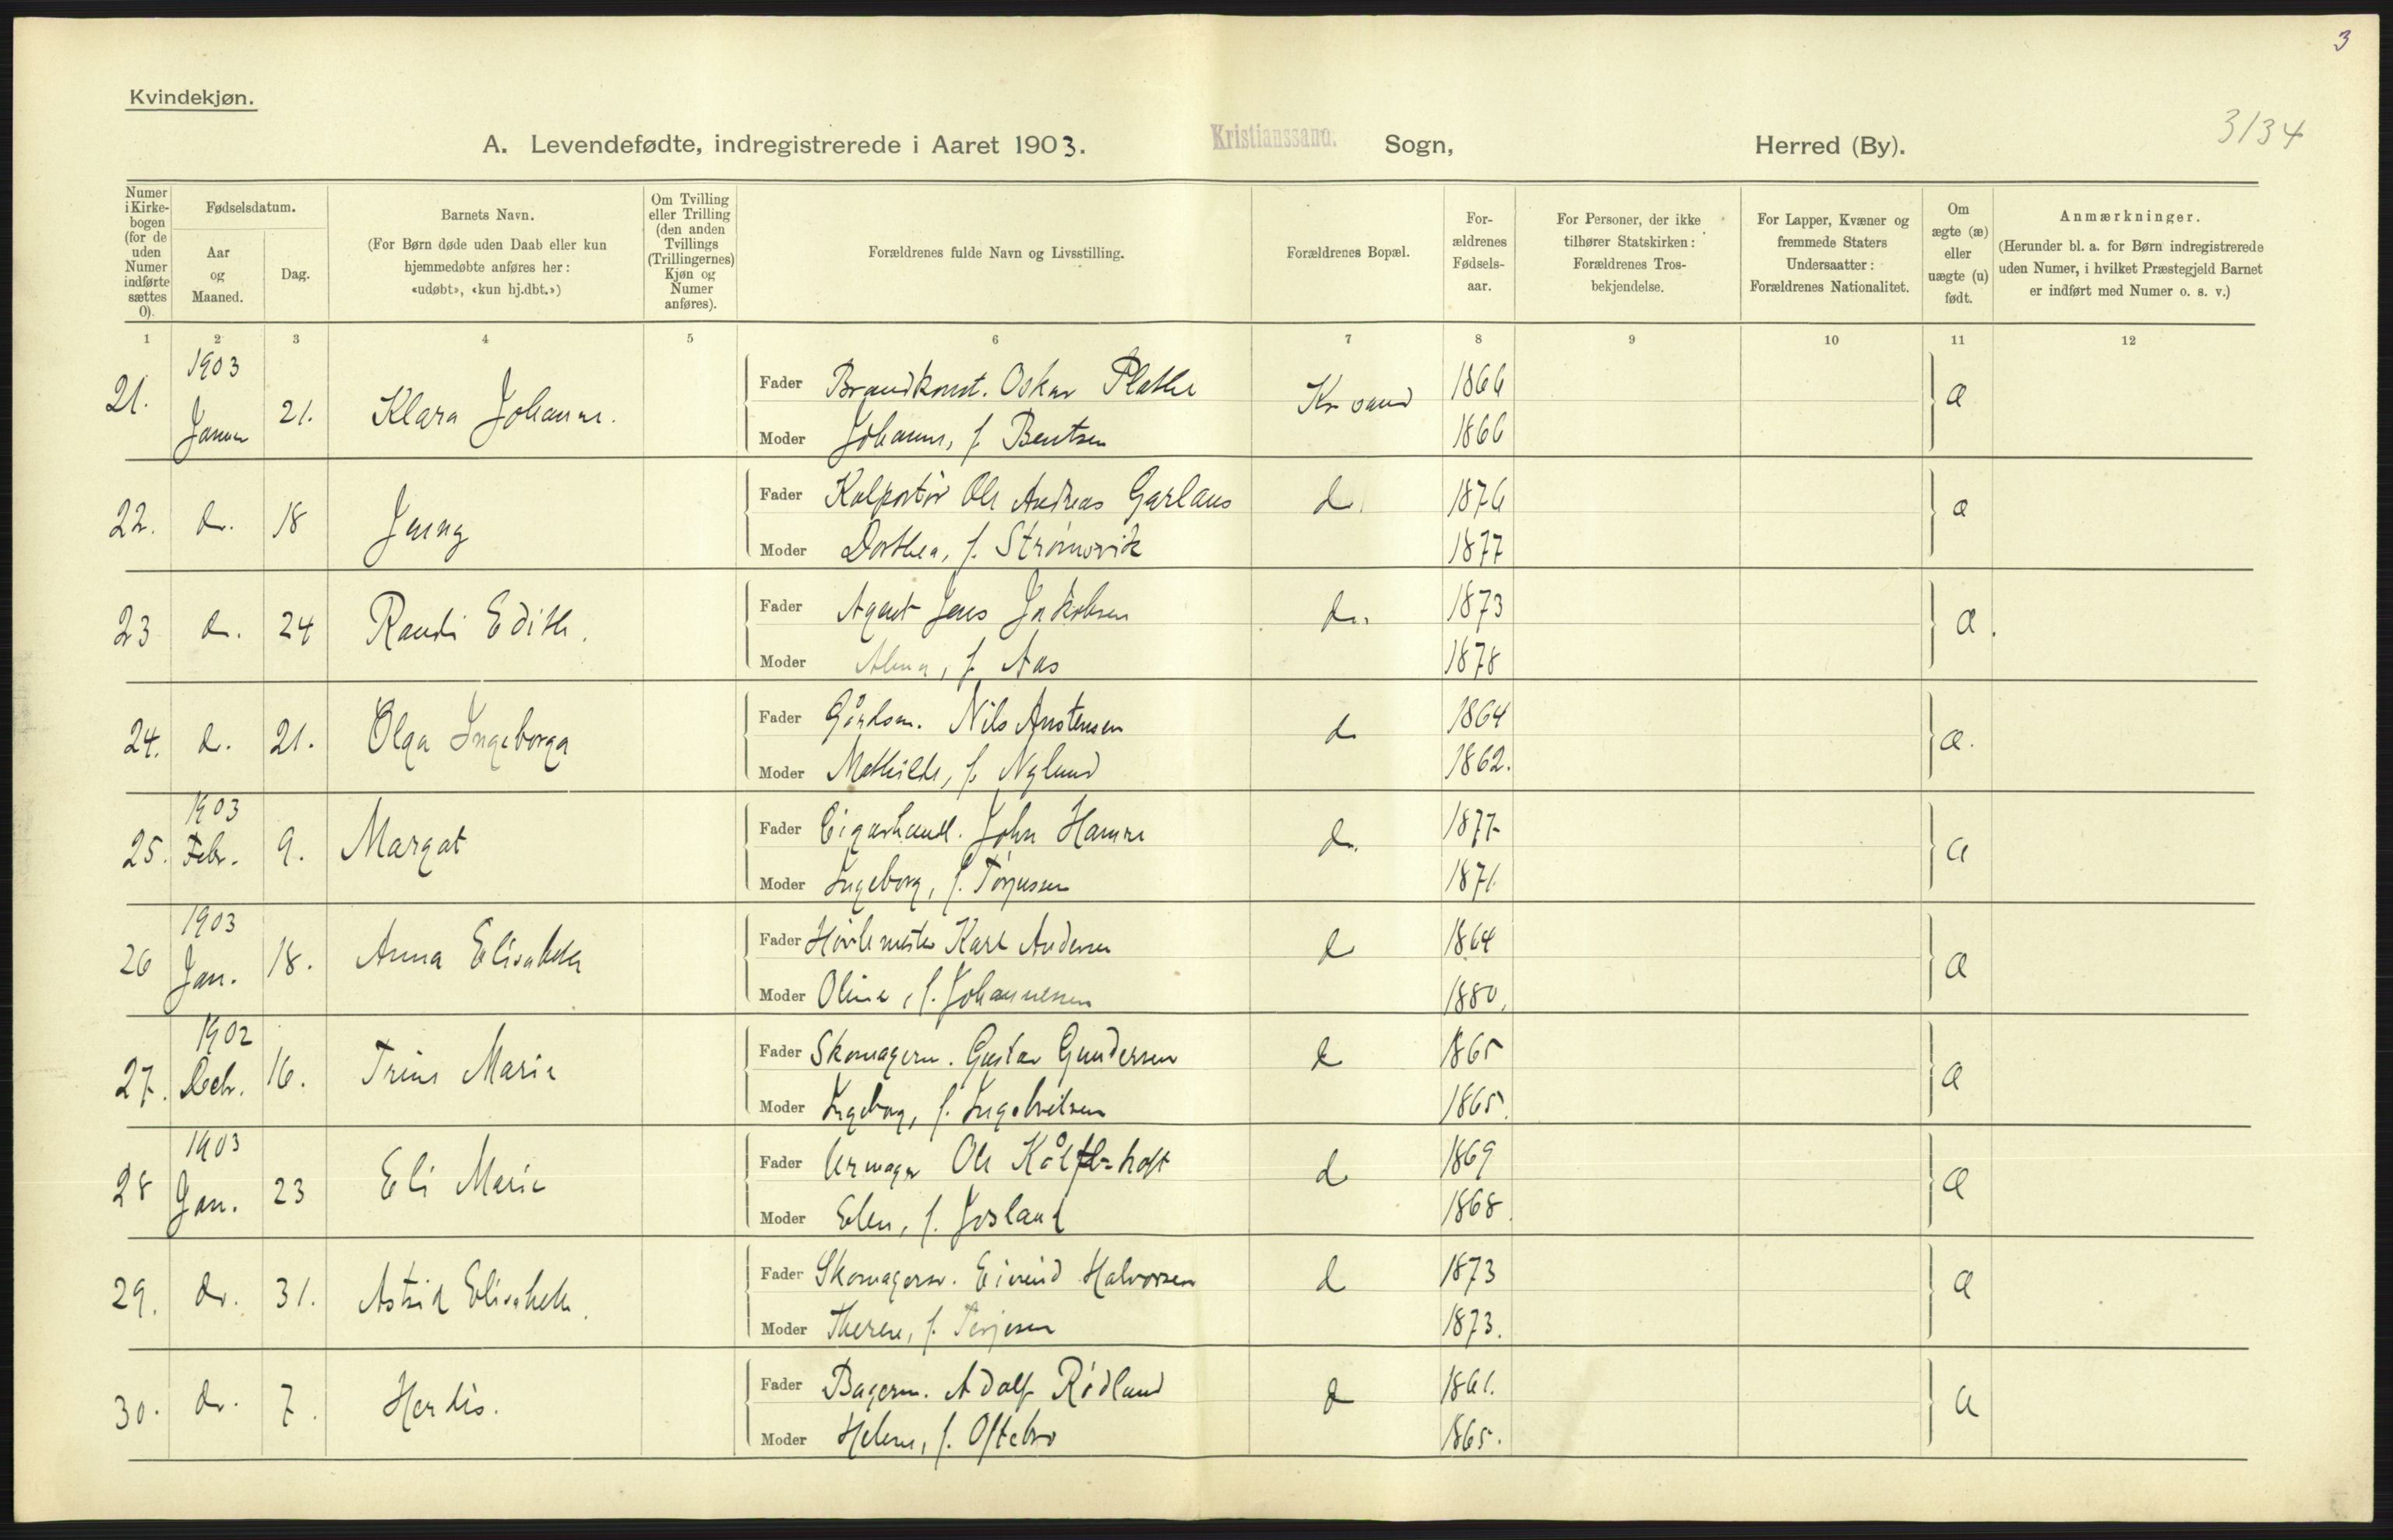 3
Kvindekjøn.
3134
A. Levendefødte, indregistrerede i Aaret 1903. Kristianssand. Sogn, Herred (By).
Numer i Kirkebogen (for de uden Numer indførte sættes 0).
Fødselsdatum.
Aar og Maaned.
Dag.
Barnets Navn.
(For Børn døde uden Daab eller kun hjemmedøbte anføres her: «udøbt», «kun hj.dbt.»)
Om Tvilling eller Trilling (den anden Tvillings (Trillingernes) Kjøn og Numer anføres).
Forældrenes fulde Navn og Livsstilling.
Forældrenes Bopæl.
Forældrenes Fødselsaar.
For Personer, der ikke tilhører Statskirken: Forældrenes Trosbekjendelse.
For Lapper, Kvæner og fremmede Staters Undersaatter: Forældrenes Nationalitet.
Om ægte (æ) eller uægte (u) født.
Anmærkninger.
(Herunder bl. a. for Børn indregistrerede uden Numer, i hvilket Præstegjeld Barnet er indført med Numer o. s. v.)
1 2 3 4 5 6 7 8 9 10 11 12
21. 1903 Januar 21. Klara Johanne. Fader Oskar Plathe Kr sand 1866 æ
Moder Johanne, f. Bentsen 1866
22. do. 18 Jenny Fader Kolportør Ole Andreas Garlaus d. 1876 æ
Moder Dorthea, f. Strømsvik 1877
23 do. 24 Randi Edith. Fader Agent Jens Jakobsen do. 1873 æ.
Moder Alma, f. Aas 1878
24. do. 21. Olga Ingeborga Fader Nils Anstensen d 1864 æ.
Moder Mathilde, f. Nylund 1862.
25. 1903 Febr. 9. Margot Fader Cigarhandl. John Hamre do. 1877 æ
Moder Ingeborg, f. Torjussen 1871.
26 1903 Jan. 18. Anna Elisabeth Fader Høvlemester Karl Andersen d 1864 æ
Moder Oline, f. Johannesen 1880.
27. 1902 Decbr. 16. Trine Marie Fader Skomagerm. Gustav Gundersen d 1865 æ
Moder Ingeborg, f. Ingebretsen 1865.
28 1903 Jan. 23 Eli Marie Fader Urmager Ole d 1869 æ
Moder Elen, f. Josland 1868.
29. do. 31. Astrid Elisabeth. Fader Skomagersv. Eivind Halvorsen d 1873 æ
Moder Therese, f. Terjesen 1873.
30. do. 7. Herdis. Fader Bagerm. Adolf Rødland d 1861. æ
Moder Helene, f. Oftebro 1865.